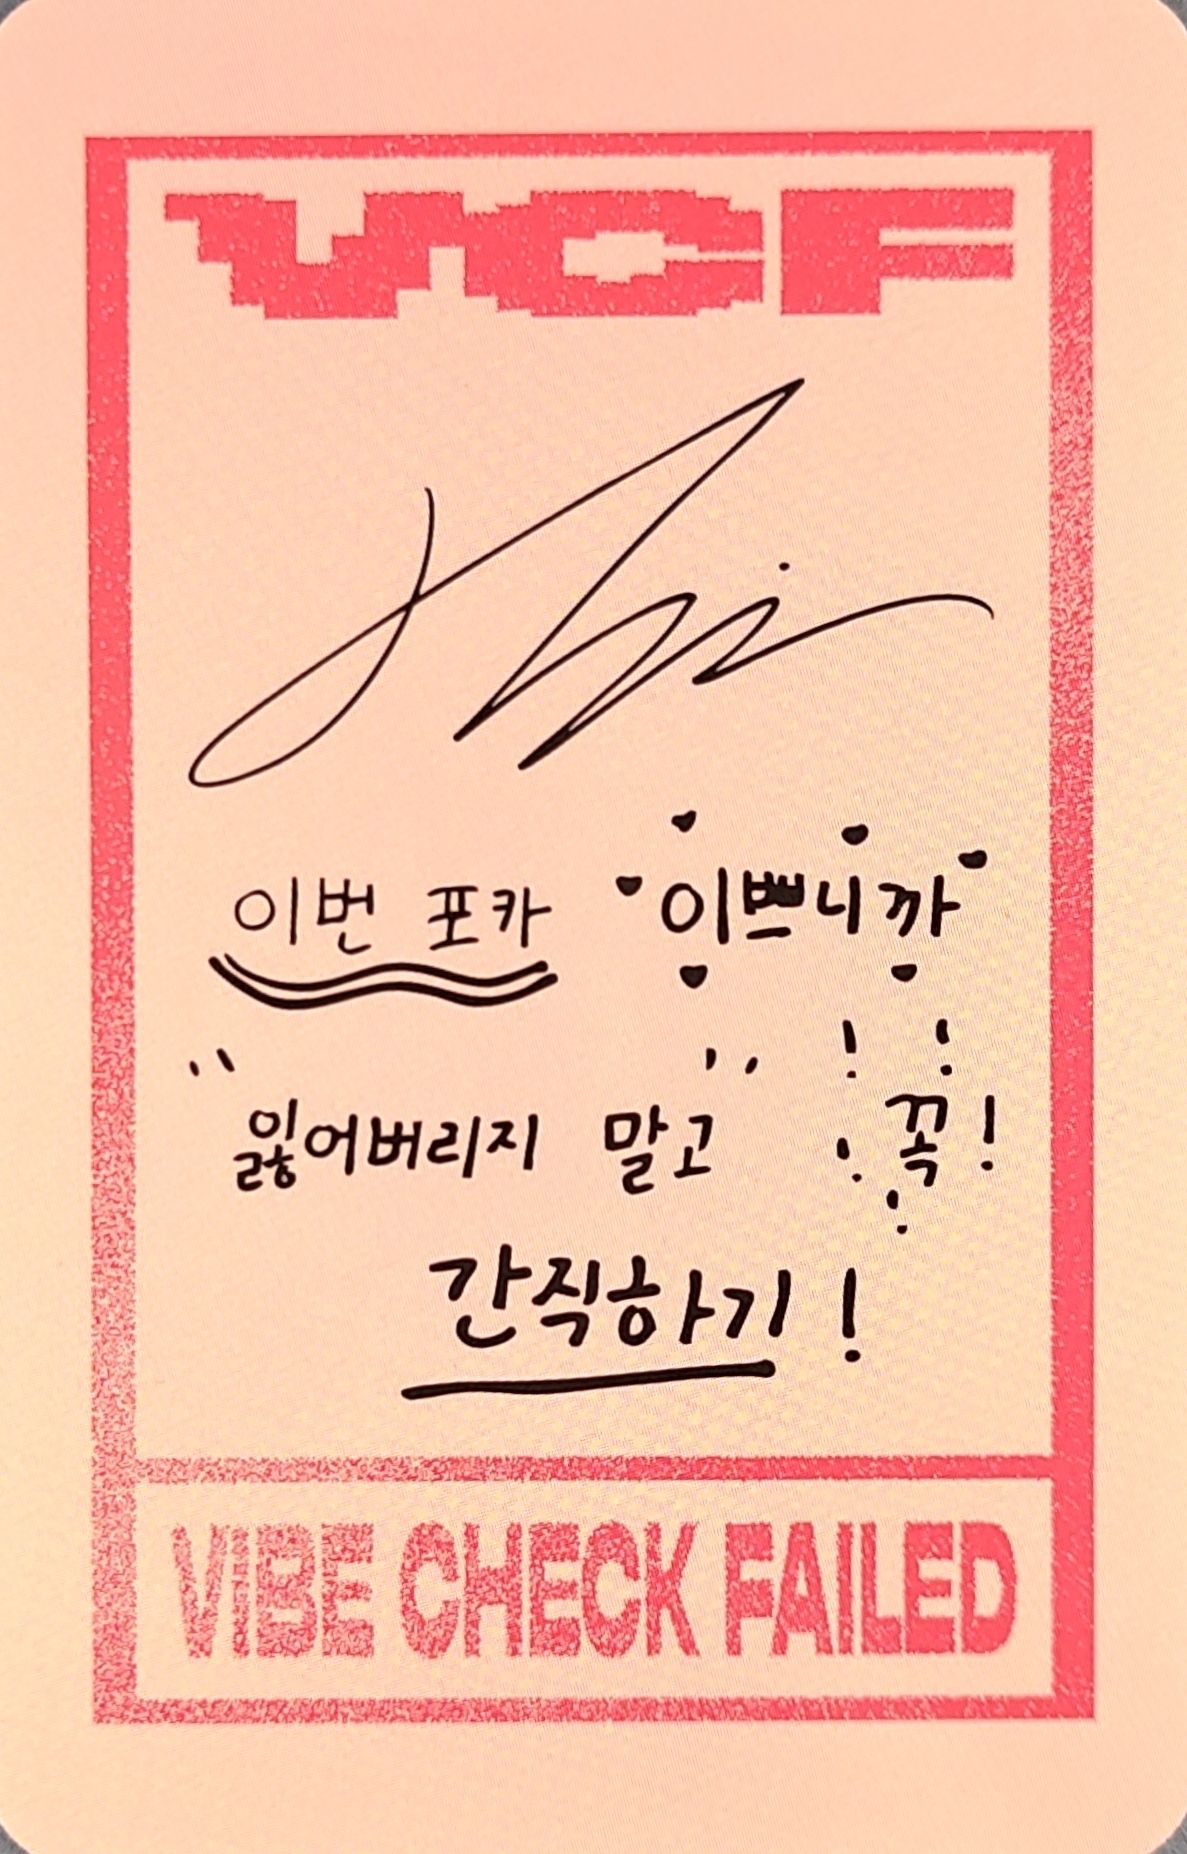 VCF
이번 포카 이쁘니까
"잃어버리지 말고" 꼭!
간직하기!
VIBE CHECK FAILED